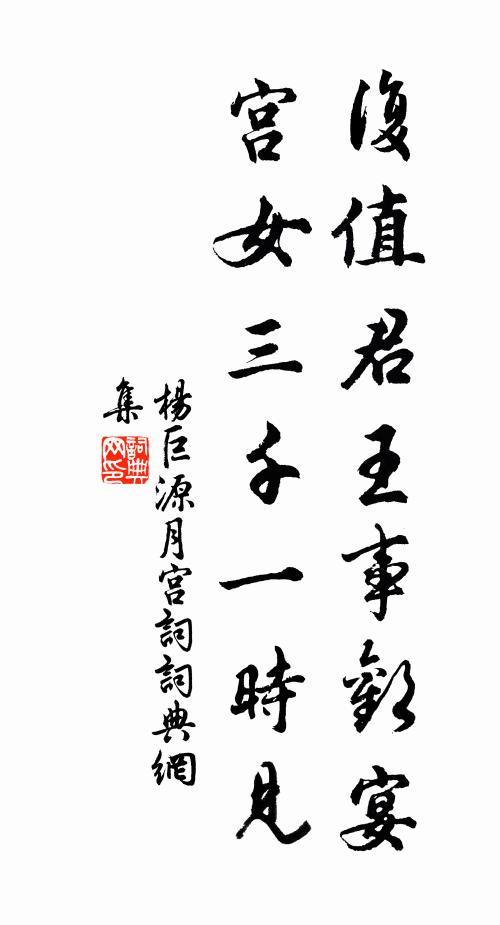 復值君王事歡宴
宮女三千一時見
楊巨源月宮詞詞典網
集
詞典
网印